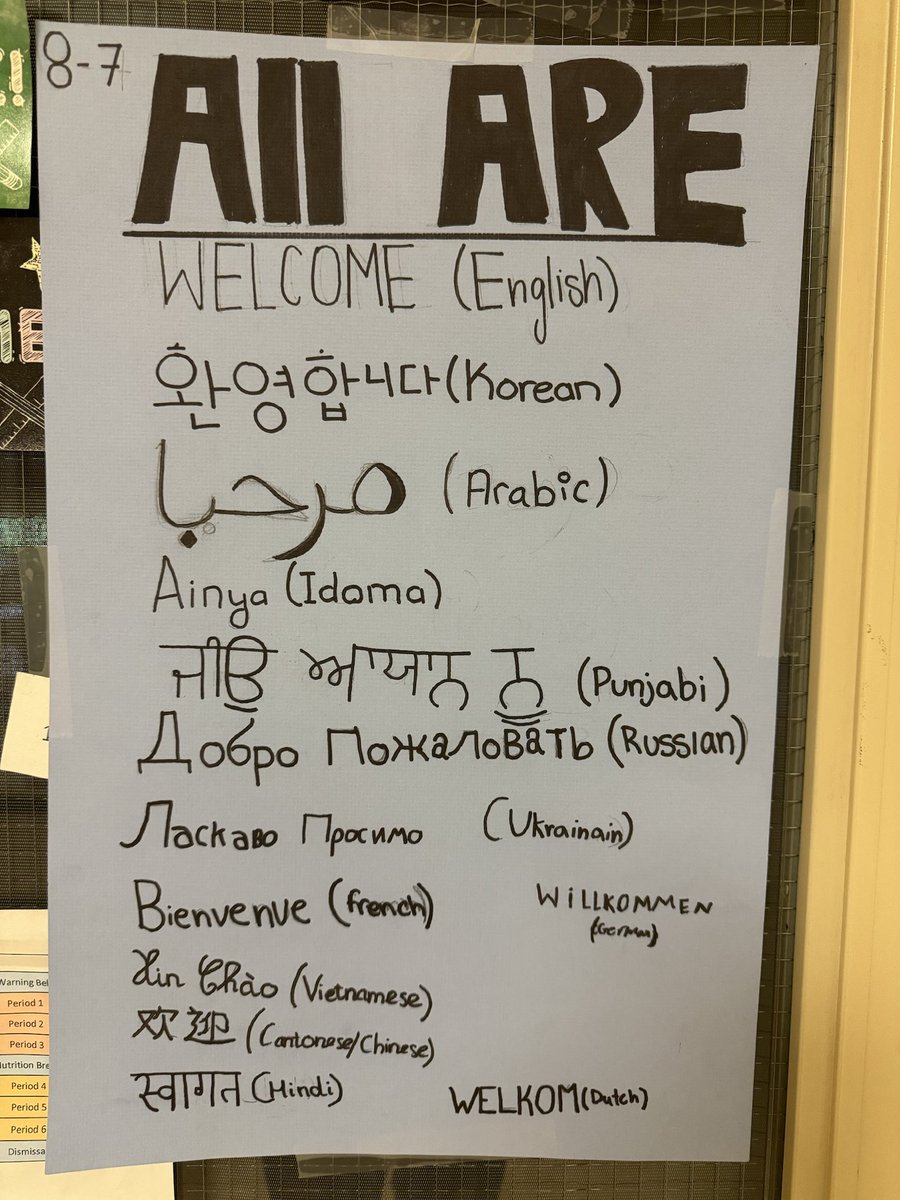 8-7
All ARE
WELCOME (English)
환영합니다 (Korean)
مرحبا (Arabic)
Ainya (Idoma)
ਜੀਉ ਆਯਾਨ ਨੂੰ (Punjabi)
Добро Пожаловать (Russian)
Ласкаво Просимо (Ukrainain)
Bienvenue (french)
WiLLKOMMEN
(German)
Xin Chào (Vietnamese)
欢迎 (Cantonese/Chinese)
स्वागत (Hindi)
WELKOM (Dutch)
Warning Bel
Period 1
Period 2
Period 3
Nutrition Bre
Period 4
Period 5
Period 6
Dismissa